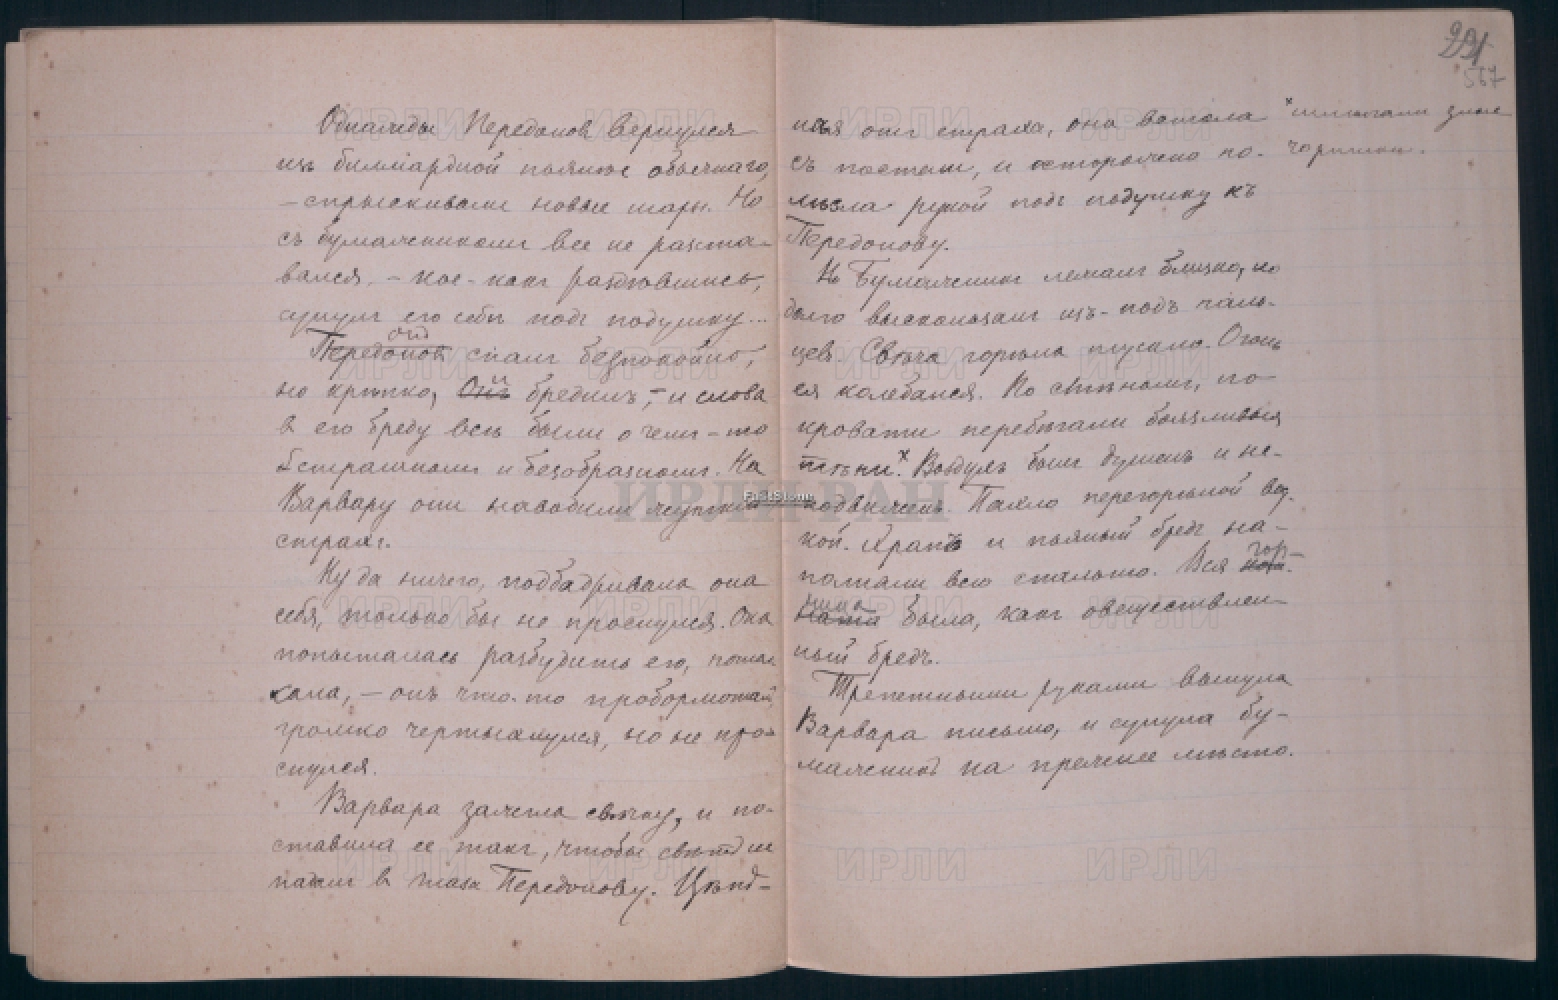 Однажды Передонов вернулся
изъ билліардной пьянѣе обычнаго,
— спрыскивали новые шары. Но
съ бумажникомъ все не разста-
вался, — кое-какъ раздѣвшись,
сунулъ его себѣ подъ подушку...
Передонов онъ спалъ безпокойно,
но крѣпко, Онъ бредилъ, — и слова
в его бреду всѣ были о чем-то
страшномъ и безобразномъ. На
Варвару они наводили жуткій
страхъ.
Ну да ничего, подбадривала она
себя, только бы не проснулся. Она
попыталась разбудить его, потол
кала, — онъ что-то пробормоталъ,
громко чертыхнулся, но не про-
снулся.
Варвара зажгла свѣчку, и по-
ставила ее такъ, чтобы свѣтъ не
падалъ в глаза Передонову. Цѣпѣ-
нѣя отъ страха, она встала
съ постели, и осторожно по-
лѣзла рукой подъ подушку къ
Передонову.
Бумажникъ лежалъ близко, но
долго выскользалъ изъ-подъ паль-
цевъ. Свѣча горѣла тускло. Огонь
ея колебался. По стѣнамъ, по
кровати перебѣгали боязливыя
тѣни.ˣ Воздухъ былъ душенъ и не-
подвиженъ. Пахло перегорѣлой вод-
кой. Храпъ и пьяный бредъ на-
полняли всю спальню. Вся гор-
ница была, какъ овеществлен-
ный бредъ.
Трепетными руками вынула
Варвара письмо, и сунула бу-
мажникъ на прежнее мѣсто.
ˣ шмыгали злые
чертики.
291
567
ИРЛИ РАН
ИРЛИ